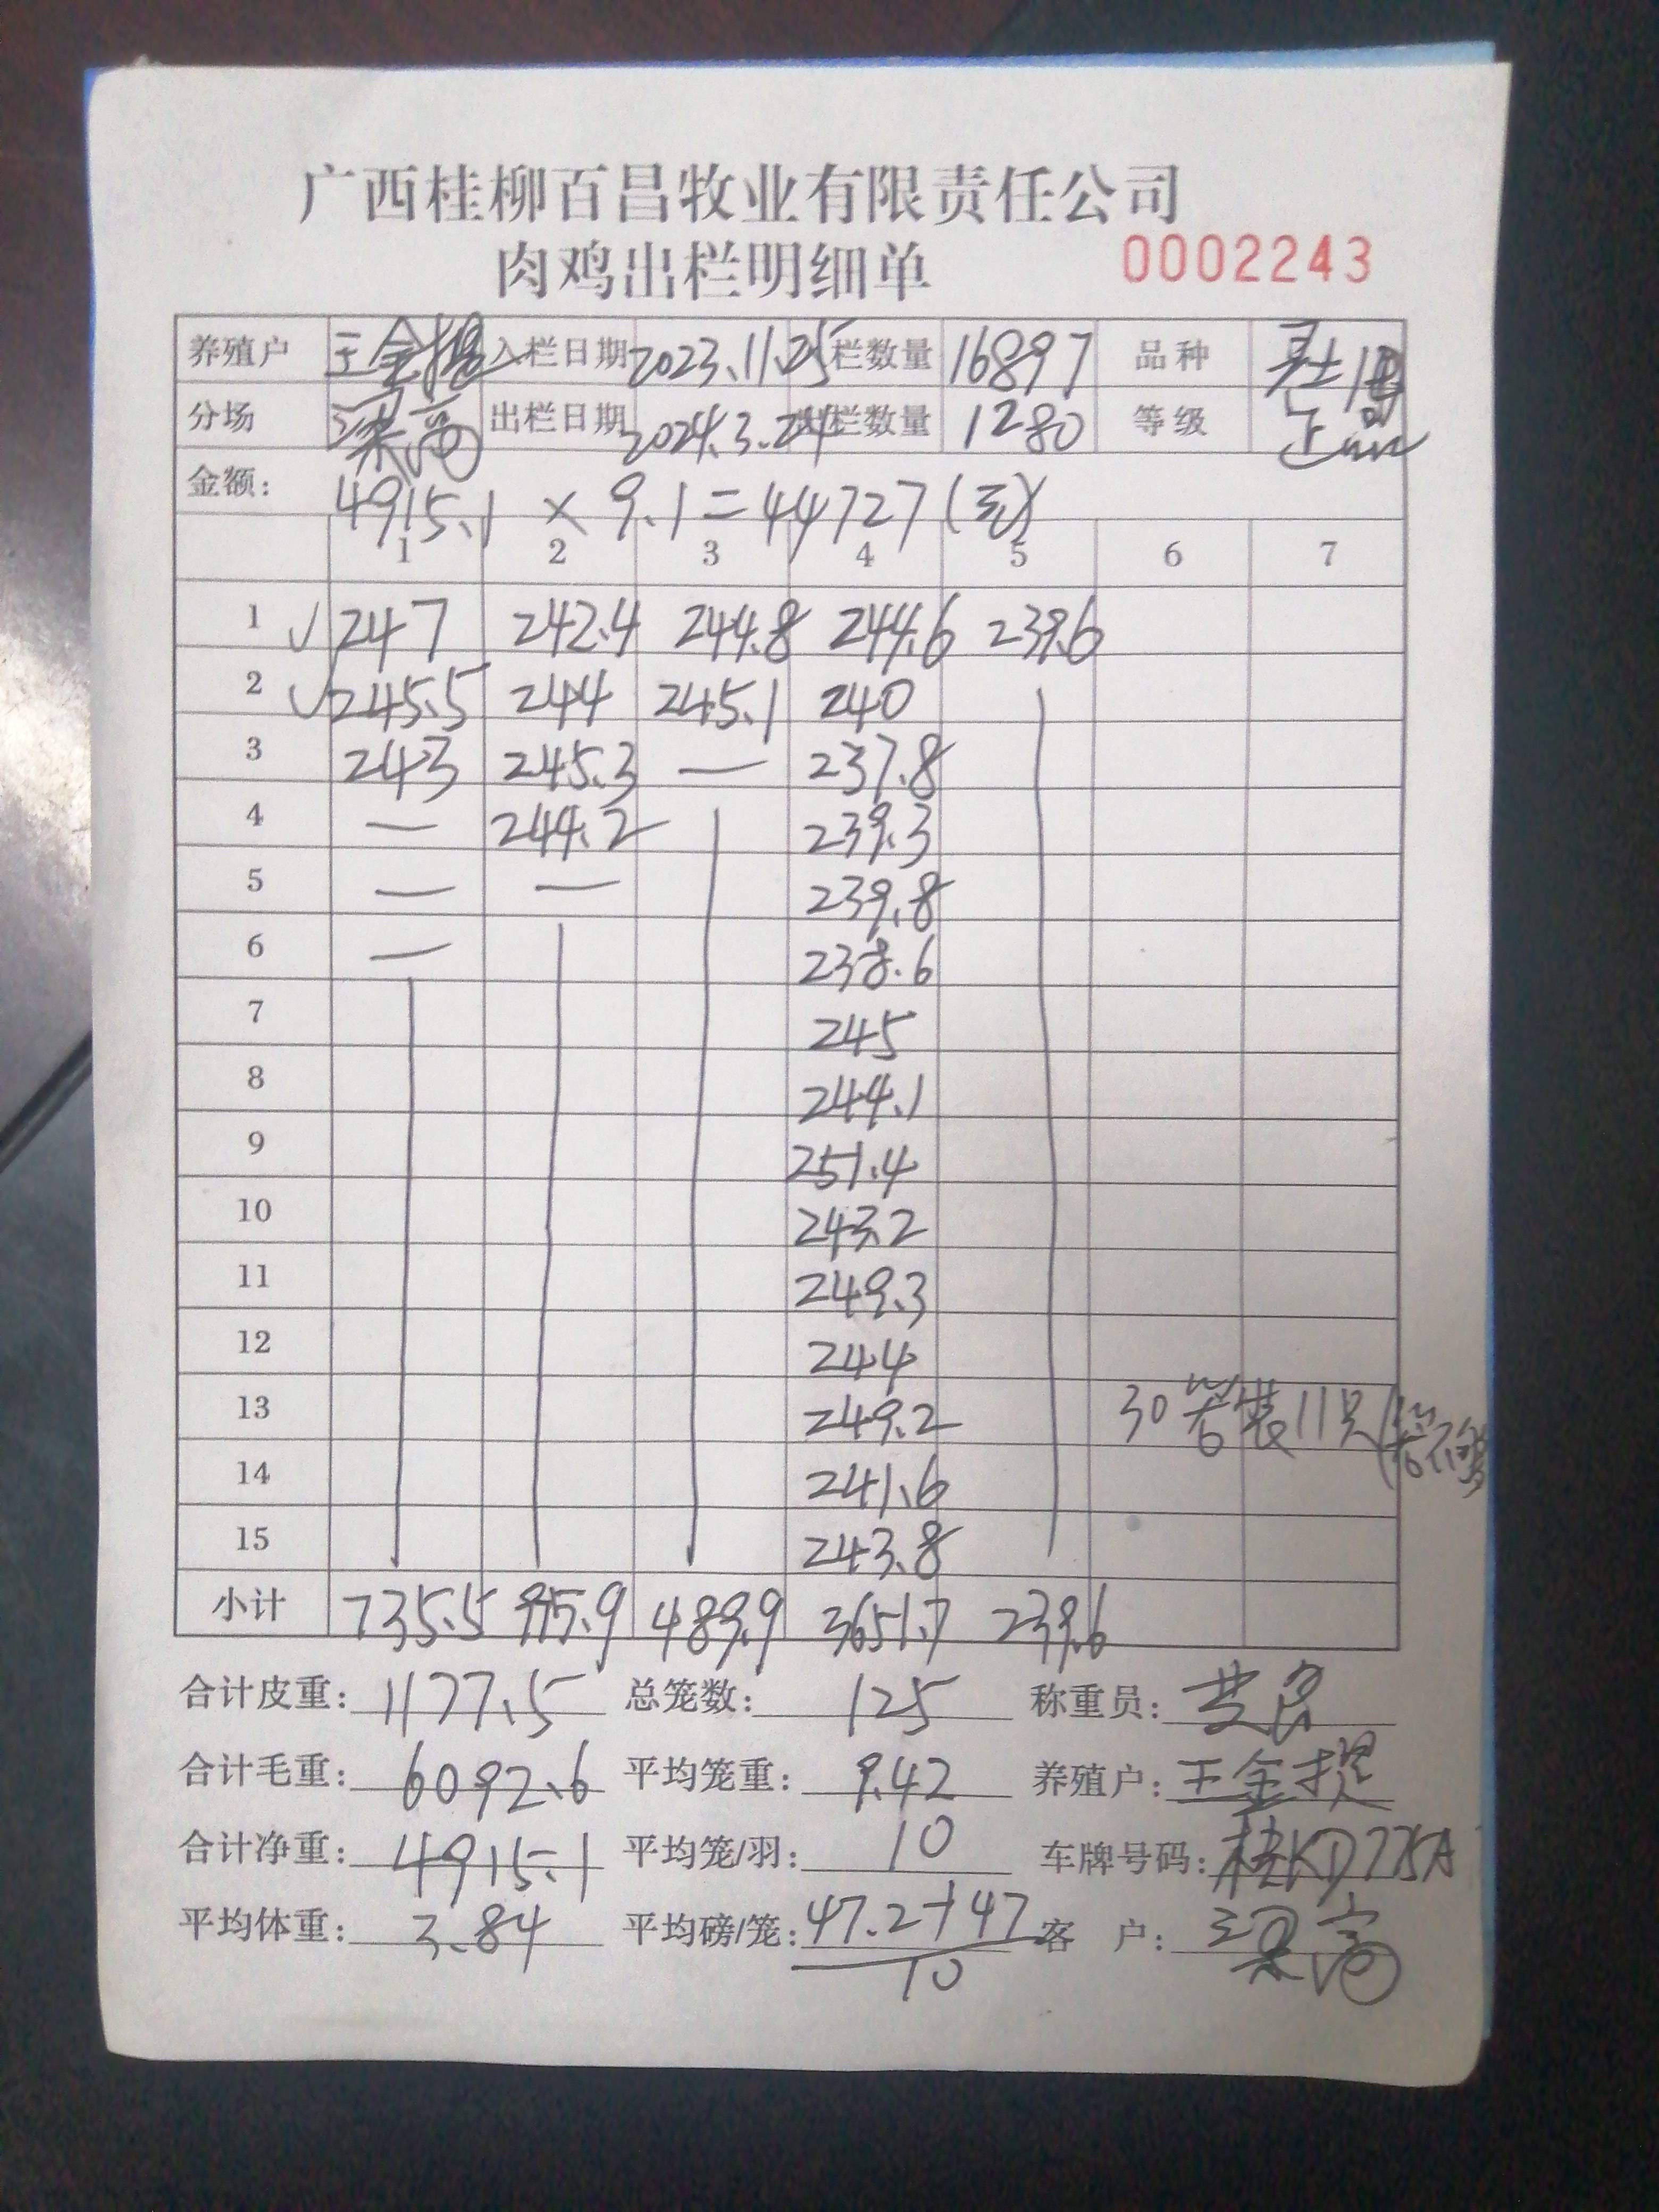 广西桂柳百昌牧业有限责任公司
肉鸡出栏明细单 0002243
养殖户 王金提 入栏日期 2023.11.25 栏数量 16897 品种
分场 梁高 出栏日期 2024.3.24 出栏数量 1280 等级 正品
金额: 4915.1 × 9.1 = 44727 (元)
1 2 3 4 5 6 7
1 √ 247 242.4 244.8 244.6 239.6
2 √ 245.5 244 245.1 240
3 243 245.3 — 237.8
4 — 244.2 239.3
5 — — 239.8
6 — 238.6
7 245
8 244.1
9 251.4
10 243.2
11 249.3
12 244
13 249.2 30笼装11只(笼不够
14 241.6
15 243.8
小计 735.5 975.9 489.9 3651.7 239.6
合计皮重: 1177.5 总笼数: 125 称重员:
合计毛重: 6092.6 平均笼重: 9.42 养殖户: 王金提
合计净重: 4915.1 平均笼/羽: 10 车牌号码: 桂KD775A
平均体重: 3.84 平均磅/笼: 47.2+47 客 户: 梁高
10